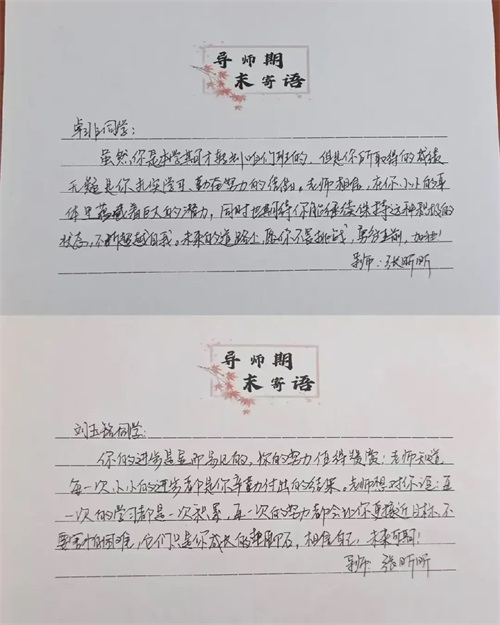 导师期
末寄语
卓非同学：
虽然你是本学期才转到咱们班的，但是你所取得的成绩
无疑是你扎实学习、勤奋努力的体现。老师相信，在你小小的身
体里蕴藏着巨大的潜力，同时也期待你能继续保持这种积极的
状态，不断超越自我。未来的道路上，愿你不畏挑战，勇往直前，加油！
导师：张昕昕
导师期
末寄语
刘玉铭同学：
你的进步是显而易见的，你的努力值得赞赏；老师知道
每一次小小的进步都是你辛勤付出的结果。老师想对你说：每
一次的学习都是一次积累，每一次的努力都会让你更接近目标，不
要害怕困难，它们只是你成长的垫脚石，相信自己，未来可期！
导师：张昕昕